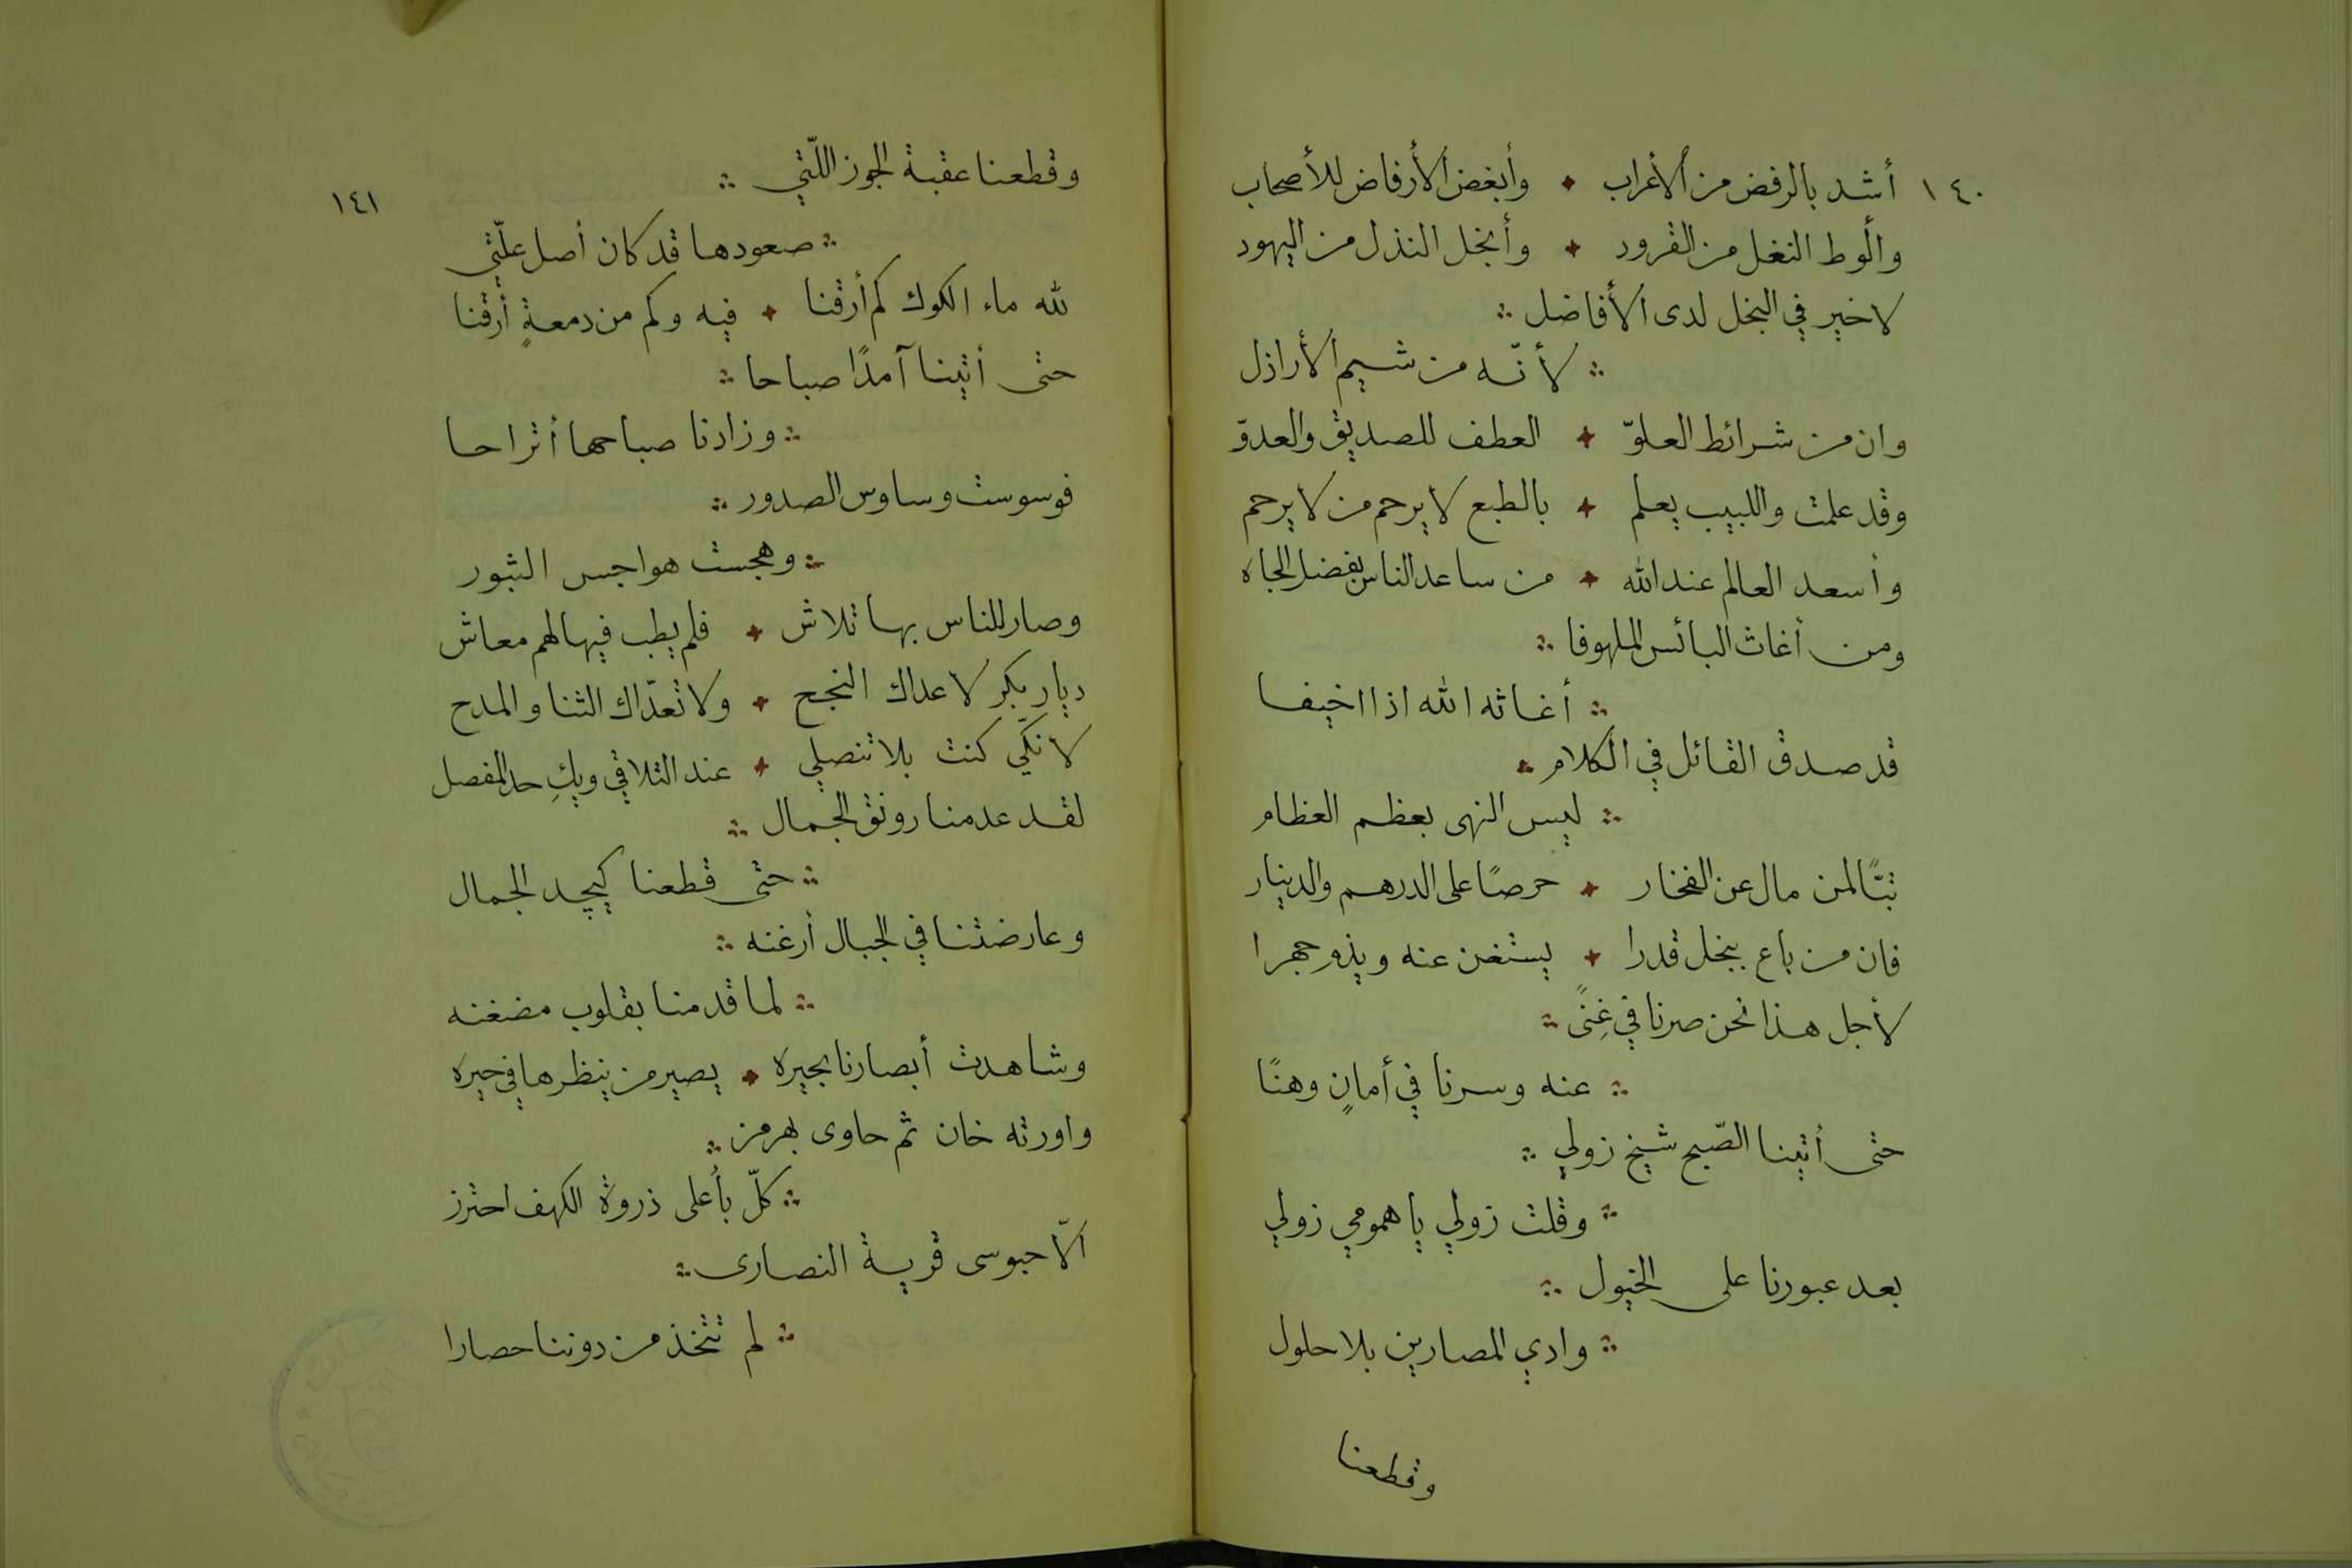 ١٤٠
أشد بالرفض من الأعراب ٭ وأبغض الأرفاض للأصحاب
وألوط النغل من القرود ٭ وأبخل النذل من اليهود
لا خير في البخل لدى الأفاضل ∴
∴ لأنّه من شيم الأراذل
وان من شرائط العلوّ ٭ العطف للصديق والعدوّ
وقد علمت واللبيب يعلم ٭ بالطبع لا يرحم من لا يرحم
وأسعد العالم عند الله ٭ من ساعد الناس بفضل الجاه
ومن أغاث البائس الملهوفا ∴
∴ أغاثه الله اذا اخيفا
قد صدق القائل في الكلام ∴
∴ ليس النهى بعظم العظام
تبًّا لمن مال عن الفخار ٭ حرصًا على الدرهم والدينار
فان من باع ببخل قدرا ٭ يستغن عنه ويذم جهرا
لأجل هذا نحن صرنا في غِنًى ∴
∴ عنه وسرنا في أمانٍ وهنًا
حتى أتينا الصّبح شيخ زولي ∴
∴ وقلت زولي يا همومي زولي
بعد عبورنا على الخيول ∴
∴ وادي المصارين بلا حلول
وقطعنا
١٤١
وقطعنا عقبة الجوز اللّتي ∴
∴ صعودها قد كان أصل علّتي
لله ماء الكوك كم أرقنا ٭ فيه وكم من دمعةٍ أرقنا
حتى أتينا آمدًا صباحا ∴
∴ وزادنا صباحها أتراحا
فوسوست وساوس الصدور ∴
∴ وهجست هواجس الثبور
وصار للناس بها تلاش ٭ فلم يطب فيها لهم معاش
ديار بكر لا عداك النجح ٭ ولا تعدّاك الثنا والمدح
لانكي كنت بلا تنصلي ٭ عند التلاقي وبكِ حد المفصل
لقد عدمنا رونق الجمال ∴
∴ حتى قطعنا كيچد الجمال
وعارضتنا في الجبال أرغنه ∴
∴ لما قدمنا بقلوب مضغنه
وشاهدت أبصارنا بحيره ٭ يصير من ينظرها في حيره
واورته خان ثم حاوى بهرمز ∴
∴ كلّ بأعلى ذروة الكهف احترز
الّا حبوسى قرية النصارى ∴
∴ لم تتخذ من دوننا حصارا